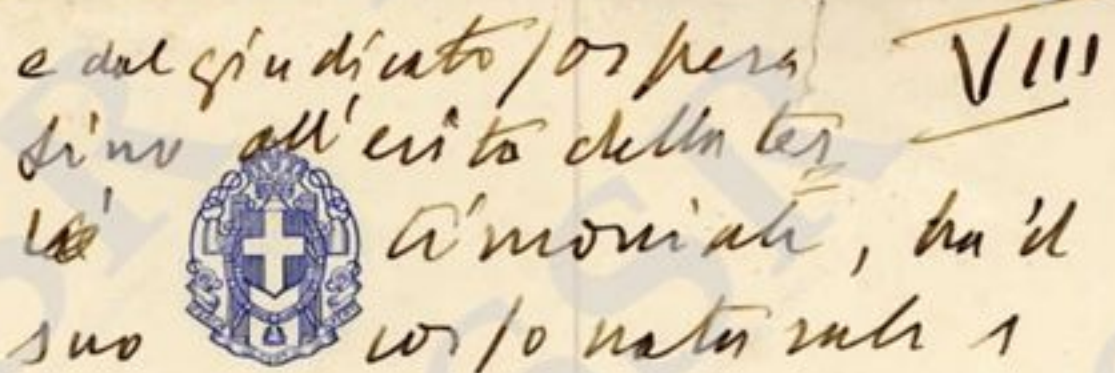 e dal giudicato sospesa VIII
sino all'esito della tes
timoniale, ha il
suo corso naturale